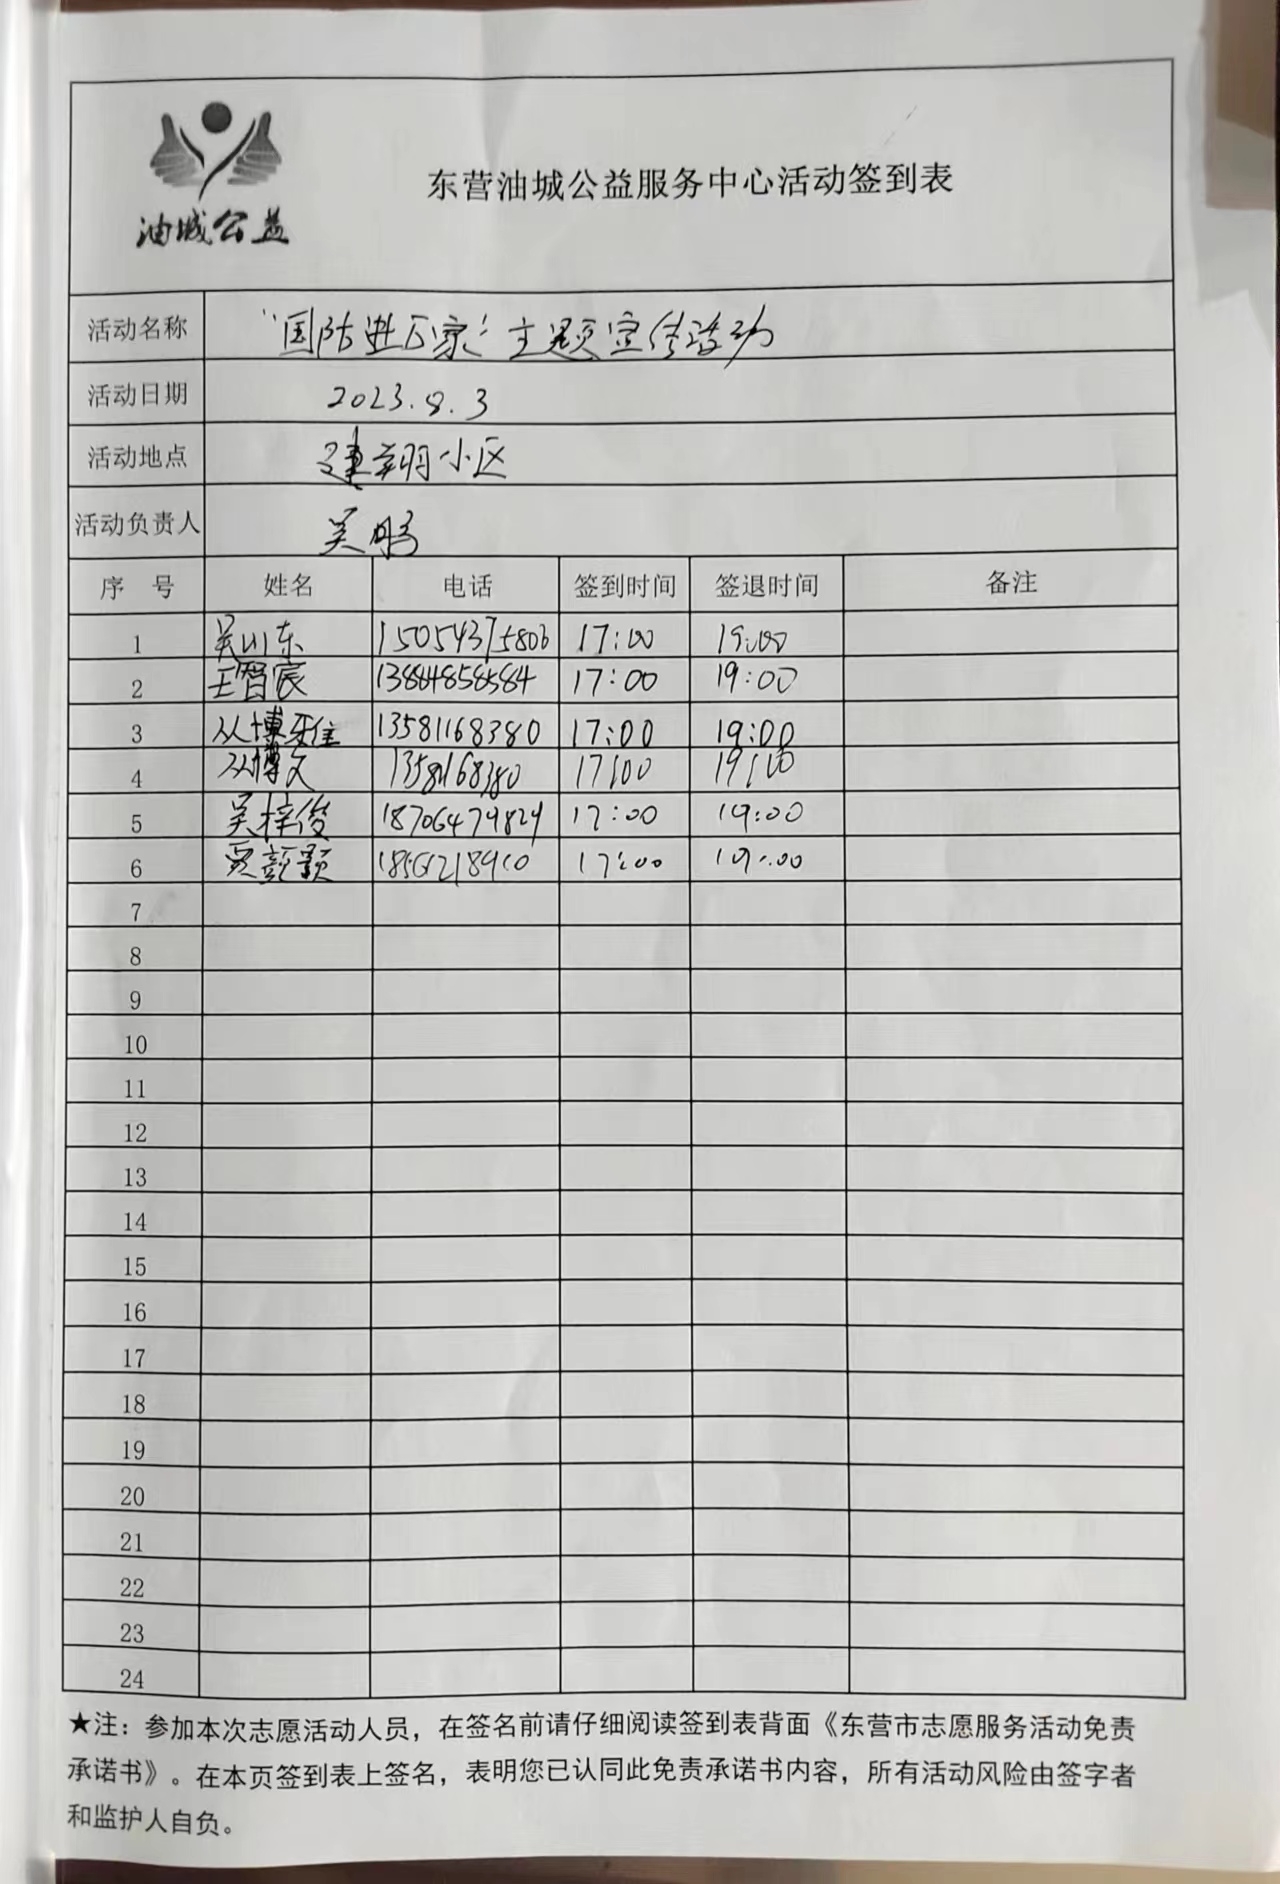 油城公益
东营油城公益服务中心活动签到表
活动名称 “国防进万家”主题宣传活动
活动日期 2023.8.3
活动地点 建翔小区
活动负责人 吴鹏
序 号 姓名 电话 签到时间 签退时间 备注
1 吴山东 15054375806 17:00 19:00
2 王智宸 17:00 19:00
3 从博雅 13581168380 17:00 19:00
4 从博文 13581168380 17:00 19:00
5 吴梓俊 18706479829 17:00 19:00
6 贾 17:00 19:00
7
8
9
10
11
12
13
14
15
16
17
18
19
20
21
22
23
24
★注：参加本次志愿活动人员，在签名前请仔细阅读签到表背面《东营市志愿服务活动免责
承诺书》。在本页签到表上签名，表明您已认同此免责承诺书内容，所有活动风险由签字者
和监护人自负。